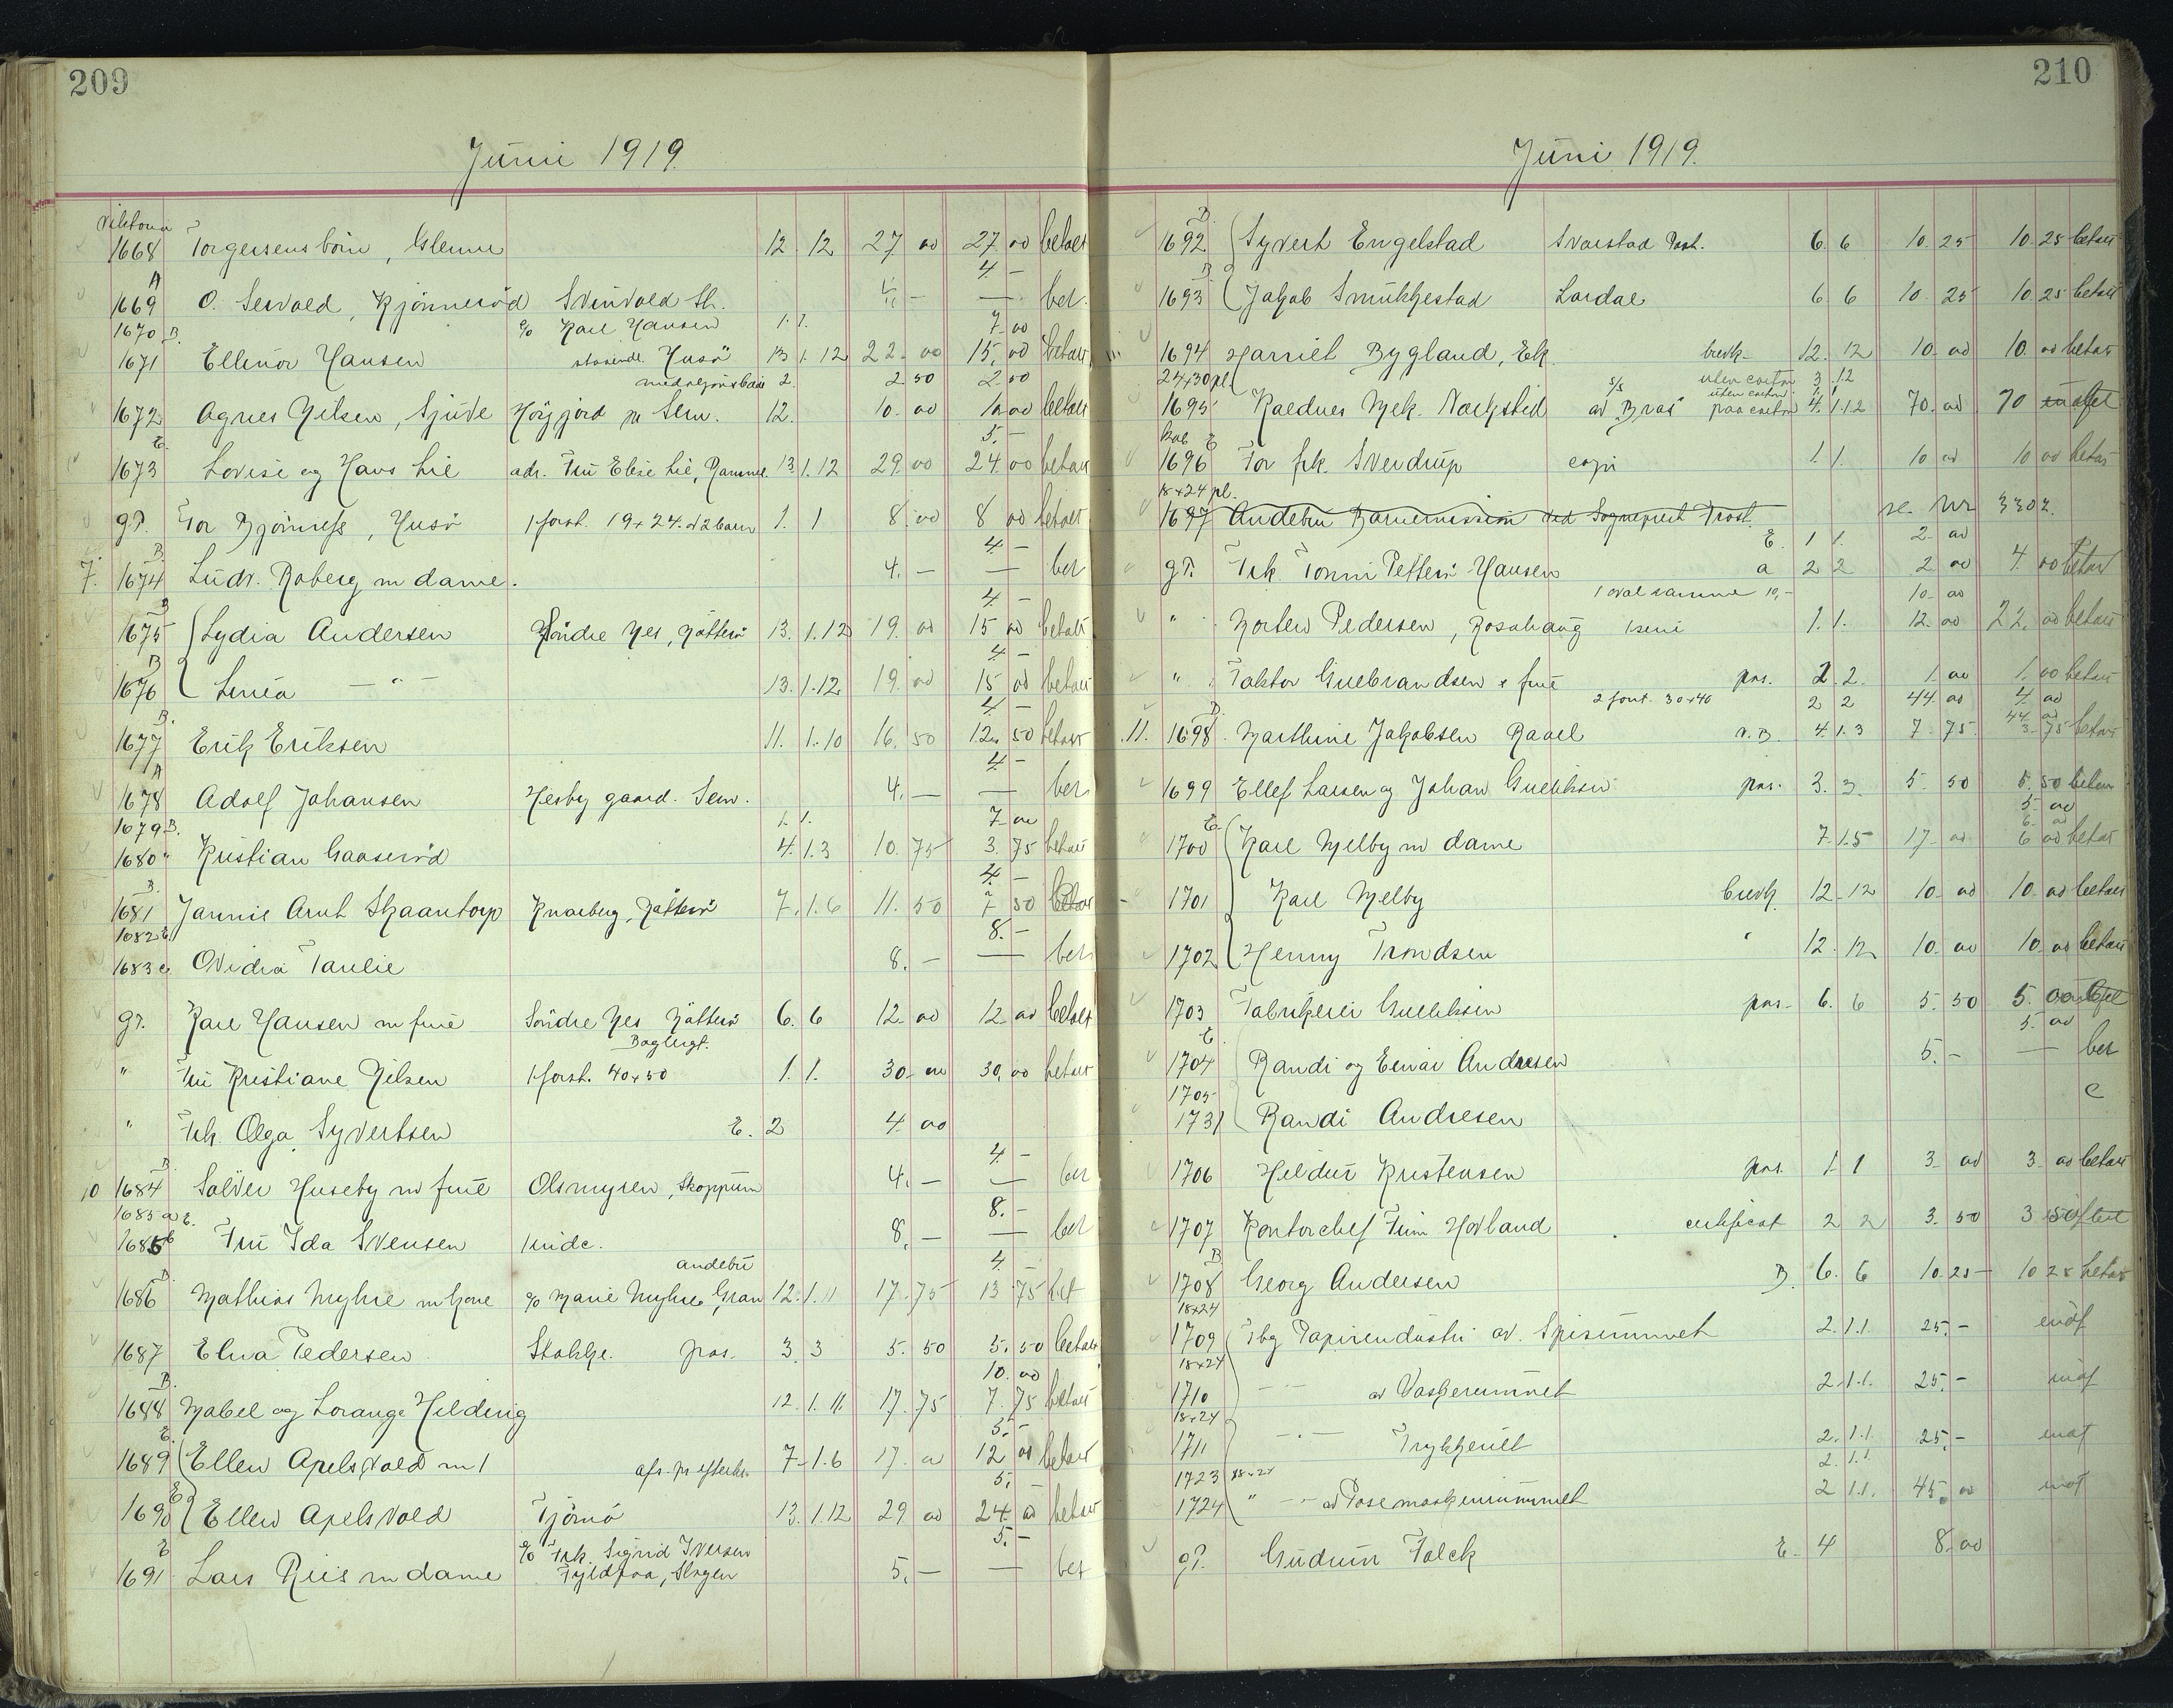 209
Juni 1919.
Viktoria
1668 Torgersens börn, 12. 12 27. 00 27. 00 betalt
4. -
A
1669 O. Servold, Kjönneröd Svinvold St. - — bet.
1670 B. c/o Karl Hansen 1. 1. 7. 00
1671 Ellinor Hansen Husö 13. 1. 12 22. 00 15. 00 betalt
2. 2. 50 2. 50
1672 Agnes Nilsen, Sjuve Höygjord pr Sem. 12. 10. 00 10. 00 betalt
E. 5. -
1673 Lovise og Hans Lie adr. Fru Elise Lie, Ramnes. 13. 1. 12 29. 00 24. 00 betalt
gP. Tor Björness, Husö 1 forst. 19 x 24. 2 barn 1. 1 8. 00 8 00 betalt
B. 4. -
7. 1674 Ludv. Roberg m dame. 4. - — bet
B 4. -
1675 Lydia Andersen Söndre Nes, Nötterö 13. 1. 12 19. 00 15 00 betalt
B 4. -
1676 Linea — " — 13. 1. 12. 19. 00 15 00 betalt
B. 4. -
1677 Erik Eriksen 11. 1. 10 16. 50 12. 50 betalt
A 4. -
1678 Adolf Johansen Hesby gaard. Sem. 4. - — bet
1679 B. 1. 1. 7. 00
1680 " Kristian Gaaseröd 4. 1. 3 10. 75 3. 75 betalt
B. 4. -
1681 Jannie Arnt Skaantorp Knarberg, Nötterö 7. 1. 6 11. 50 7 50 betalt
1682 E. 8. -
1683 e. Ovidia Taulie 8. - — bet
gP. Karl Hansen m frue Söndre Nes Nötterö 6. 6 12. 00 12. 00 betalt
Baglygt.
" Fru Kristiane Nilsen 1 forst. 40 x 50 1. 1. 30. 00 30. 00 betalt
" Frk. Olga Syvertsen E. 2 4. 00
B. 4. -
10 1684 Sölver Huseby m frue Olsmyren, Skoppum 4. - — bet
1685 a E. 8. -
1685 b Fru Ida Svensen 8. - — bet
B. Andebu 4. -
1686 Mathias Myhre m kone c/o Marie Myhre, Gran 12. 1. 11 17. 75 13 75 bet
1687 Elna Pedersen Stokke. pas. 3. 3 5. 50 5. 50 betalt
B. 10. 00
1688 Mabel og Lorange Hilding 12. 1. 11. 17. 75 7. 75 betalt
E. 5. -
1689 Ellen Apelsvold m 1 7. 1. 6 17. 00 12 00 betalt
E 5. -
1690 Ellen Apelsvold Tjömö 13. 1. 12 29 00 24. 00 betalt
E c/o Frk. Sigrid Iversen 5. -
1691 Lars Riis m dame Slagen 5. - — bet
210
Juni 1919.
B.
1692 Syvert Engelstad Svarstad Post. 6. 6 10. 25 10. 25 betalt
B
1693 Jakob Smukkestad Lardal 6 6 10. 25 10. 25 betalt
1694 Harriet Bygland, Ek. brevk. 12. 12 10. 00 10. 00 betalt
24 x 30 pl. s/s uten carton 3. 12
uten carton
1695 Kaldnes Mek. Værksted av "Bras" paa carton 4. 1. 12 70. 00 70
Kab E
1696 Tor frk. Sverdrup copi 1. 1. 10 00 10 00 betalt
18 x 24 pl.
1697 Andebu Barnemission ved Sogneprest Prost. se. Nr 3302.
E. 1 1. 2. 00
gP. Frk. Tonni Petterö Hansen a 2 2 2 00 4. 00 betalt
1 oval ramme 10,- 10. 00
" Morten Pedersen, Rosahaug 1. 1. 12. 00 22. 00 betalt
" Faktor Gulbrandsen & frue pas. 2. 2. 1. 00 1. 00 betalt
2 font. 30 x 40 2 2 44. 00 4. 00
B. 44. 00
11. 1698 Marthine Jakobsen Ravel v. B. 4. 1. 3 7. 75. 3. 75 betalt
1699 Ellef Larsen og Johan Gulliksen pas. 3. 3. 5. 50 5. 50 betalt
5. 00
E. 6. 00
1700 Karl Melby m dame 7. 1. 5 17. 00 6 00 betalt
1701 Karl Melby brevk. 12. 12 10. 00 10. 00 betalt
1702 Henny Trondsen " 12. 12 10. 00 10. 00 betalt
1703 Fabrikeier Gulliksen pas. 6. 6 5. 50 5.
E. 5. 00
1704 Randi og Einar Andresen 5. - — bet
1705 e
1731 Randi Andresen
1706 Hildur Kristensen pas. 1. 1 3. 00 3. 00 betalt
1707 Kontorchef Finn Hovland certificat 2 2 3. 50 3 50
B
1708 Georg Andersen B. 6. 6 10. 25 10 25 betalt
18 x 24
1709 Tbg Papirindustri av. Spiserummet 2. 1. 1. 25. -
18 x 24
1710 — " — av Vaskerummet 2. 1. 1. 25. -
18 x 24
1711 — " — Trykkeriet 2. 1. 1. 25. -
2. 1. 1.
1723 18 x 24
1724 " — av Posemaskinrummet 2 1. 1. 45. 00
gP. Gudrun Falck E. 4 8. 00